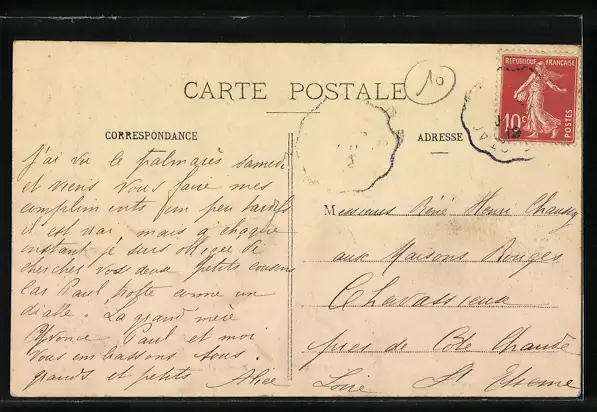 CARTE POSTALE
10
REPUBLIQUE FRANÇAISE
10c
POSTES
12
CORRESPONDANCE
ADRESSE
J'ai vu le palmarès samedi
et viens vous faire mes
compliments un peu tardifs
c'est vrai, mais à chaque
instant je suis obligée de
chercher vos deux petits cousins
Car Paul trotte comme un
diable. La grand mère
Yvonne Paul et moi
vous embrassons tous.
grands et petits Alice
Messieurs René Henri Chausy
aux Maisons Rouges
Chavassieux
près de Côte Chaude
Loire St Etienne